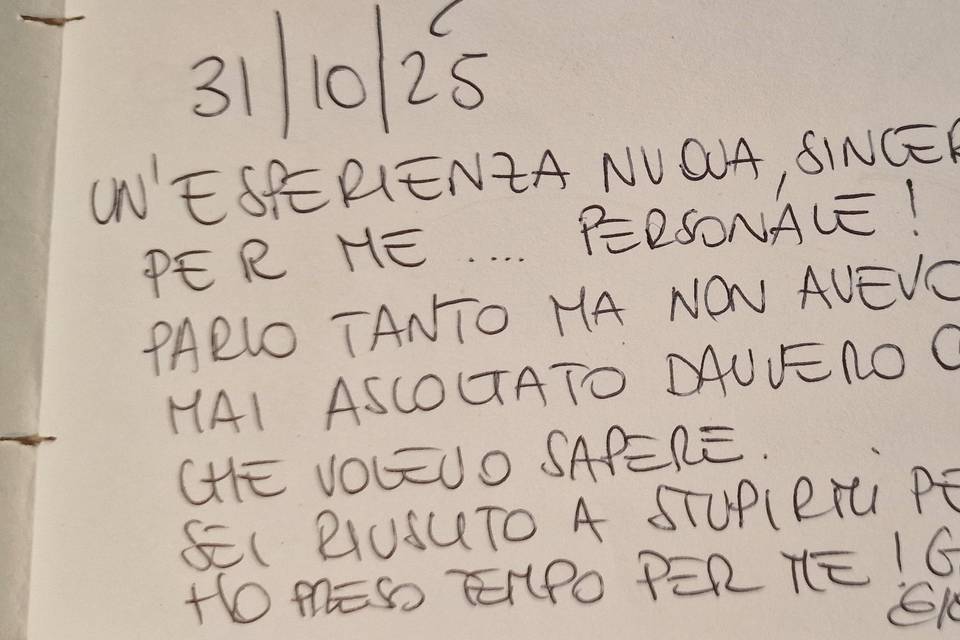 31/10/25
UN'ESPERIENZA NUOVA, SINCER
PER ME .... PERSONALE!
PARLO TANTO MA NON AVEVO
MAI ASCOLTATO DAVVERO C
CHE VOLEVO SAPERE.
SEI RIUSCITO A STUPIRMI PE
HO PRESO TEMPO PER ME! G